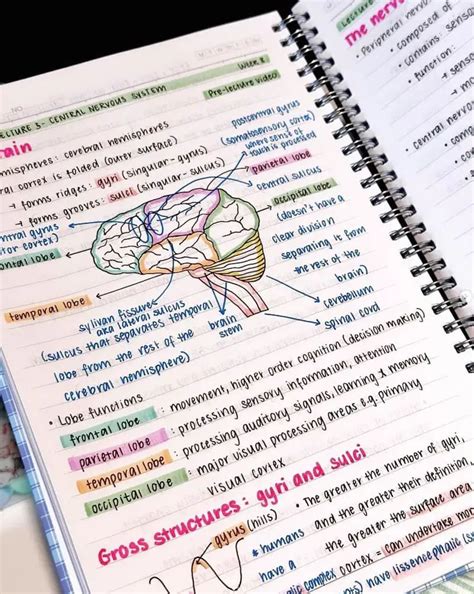 LECTURE 3: CENTRAL NERVOUS SYSTEM
WEEK 2
Pre-lecture video
hemispheres: cerebral hemispheres
cortex is folded (outer surface)
→ forms ridges: gyri (singular-gyrus)
→ forms grooves: sulci (singular-sulcus)
postcentral gyrus
(somatosensory cortex)
where sense of
touch is processed
parietal lobe
central sulcus
occipital lobe
(doesn't have a
clear division
separating it from
the rest of the
brain)
cerebellum
spinal cord
brain
stem
gyrus
cortex)
frontal lobe
temporal lobe
sylvian fissures
aka lateral sulcus
(sulcus that separates temporal
lobe from the rest of the
cerebral hemisphere)
• Lobe functions
frontal lobe : movement, higher order cognition (decision making)
parietal lobe : processing sensory information, attention
temporal lobe : processing auditory signals, learning & memory
occipital lobe : major visual processing areas e.g. primary
visual cortex
Gross structures: gyri and sulci
gyrus (hills)
• The greater the number of gyri,
and the greater their definition,
the greater the surface area
cortex = can undertake
* humans
have a
have lissencephalic
Lecture
The nerv
• Peripheral
• composed of
• contains: sensor
• function:
→
→
• central
•